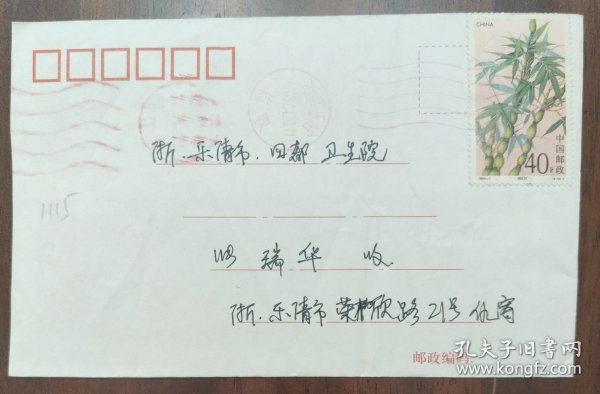 CHINA
中国邮政
40分
浙.乐清市.四都 卫生院
1115
瑞华 收
浙.乐清市 路21号
邮政编码
孔夫子旧书网
www.kongfz.com